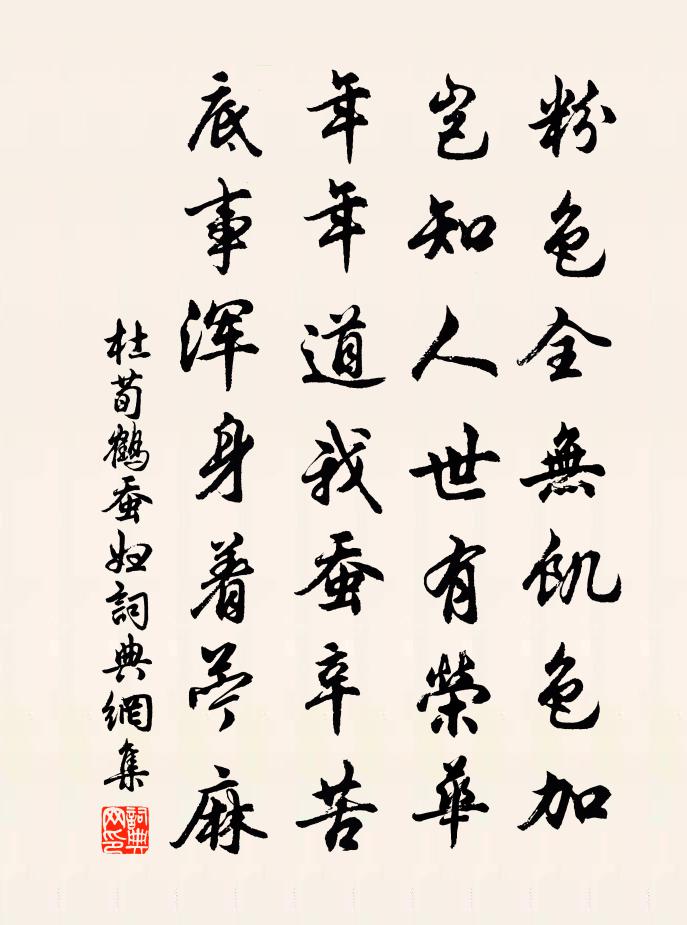 粉色全無飢色加
豈知人世有榮華
年年道我蚕辛苦
底事渾身着苧麻
杜荀鶴蚕妇詞典網集
詞典網印